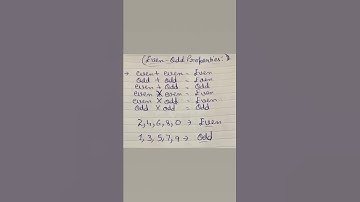 (Even-Odd Properties:)
→ even + even = Even
odd + odd = Even
even + odd = Odd
even X even = Even
even X odd = Even
odd X odd = Odd
2,4,6,8,0 → Even
1,3,5,7,9 → Odd